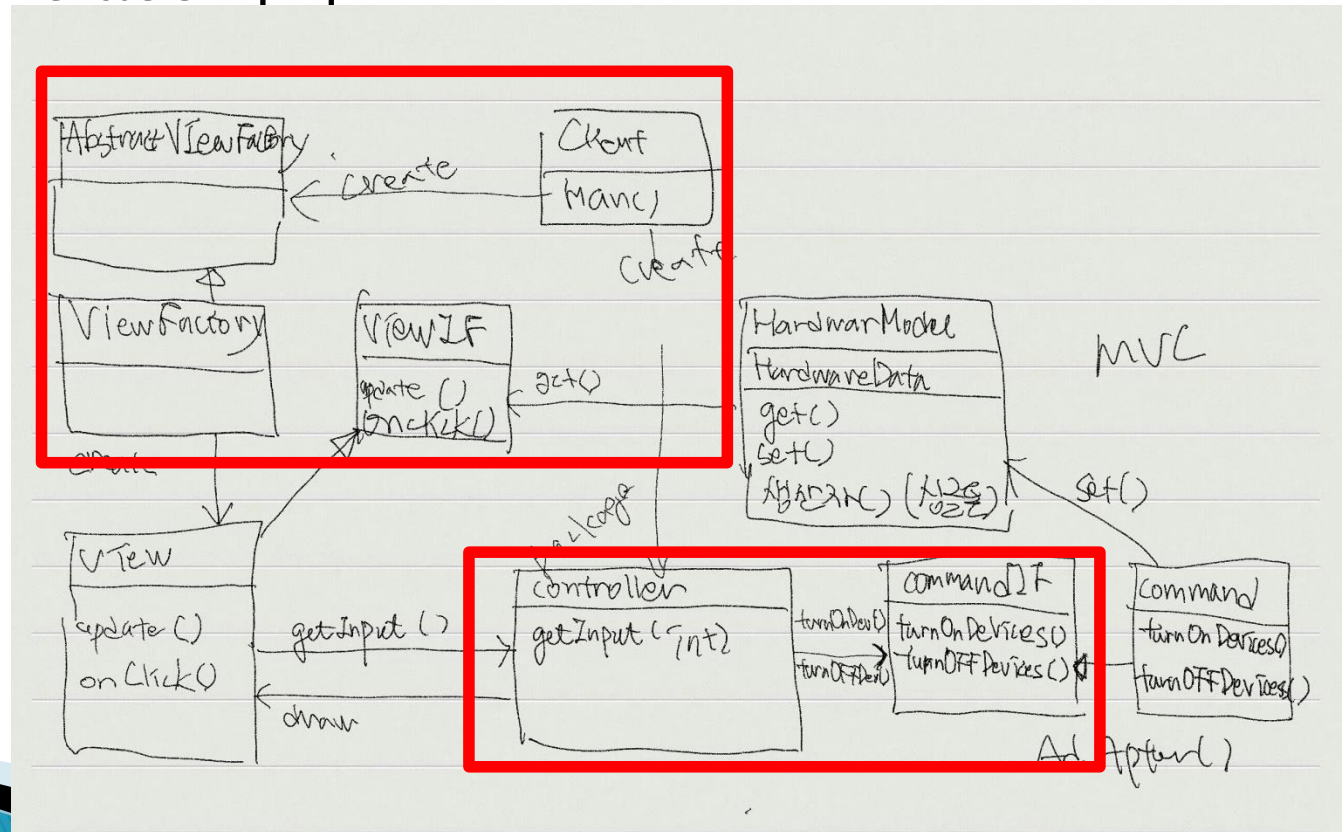 AbstractViewFactory
Client
Main()
create
create
ViewFactory
ViewIF
update ()
onClick()
get()
HardwarModel
HardwareData
get()
set()
생산자() (싱글톤)
MVC
set()
create
View
update ()
onClick()
getInput ()
draw
controller
getInput (int)
turnOnDev()
turnOFFDev()
commandIF
turnOnDevices()
turnOFFDevices()
command
turnOnDevices()
turnOFFDevices()